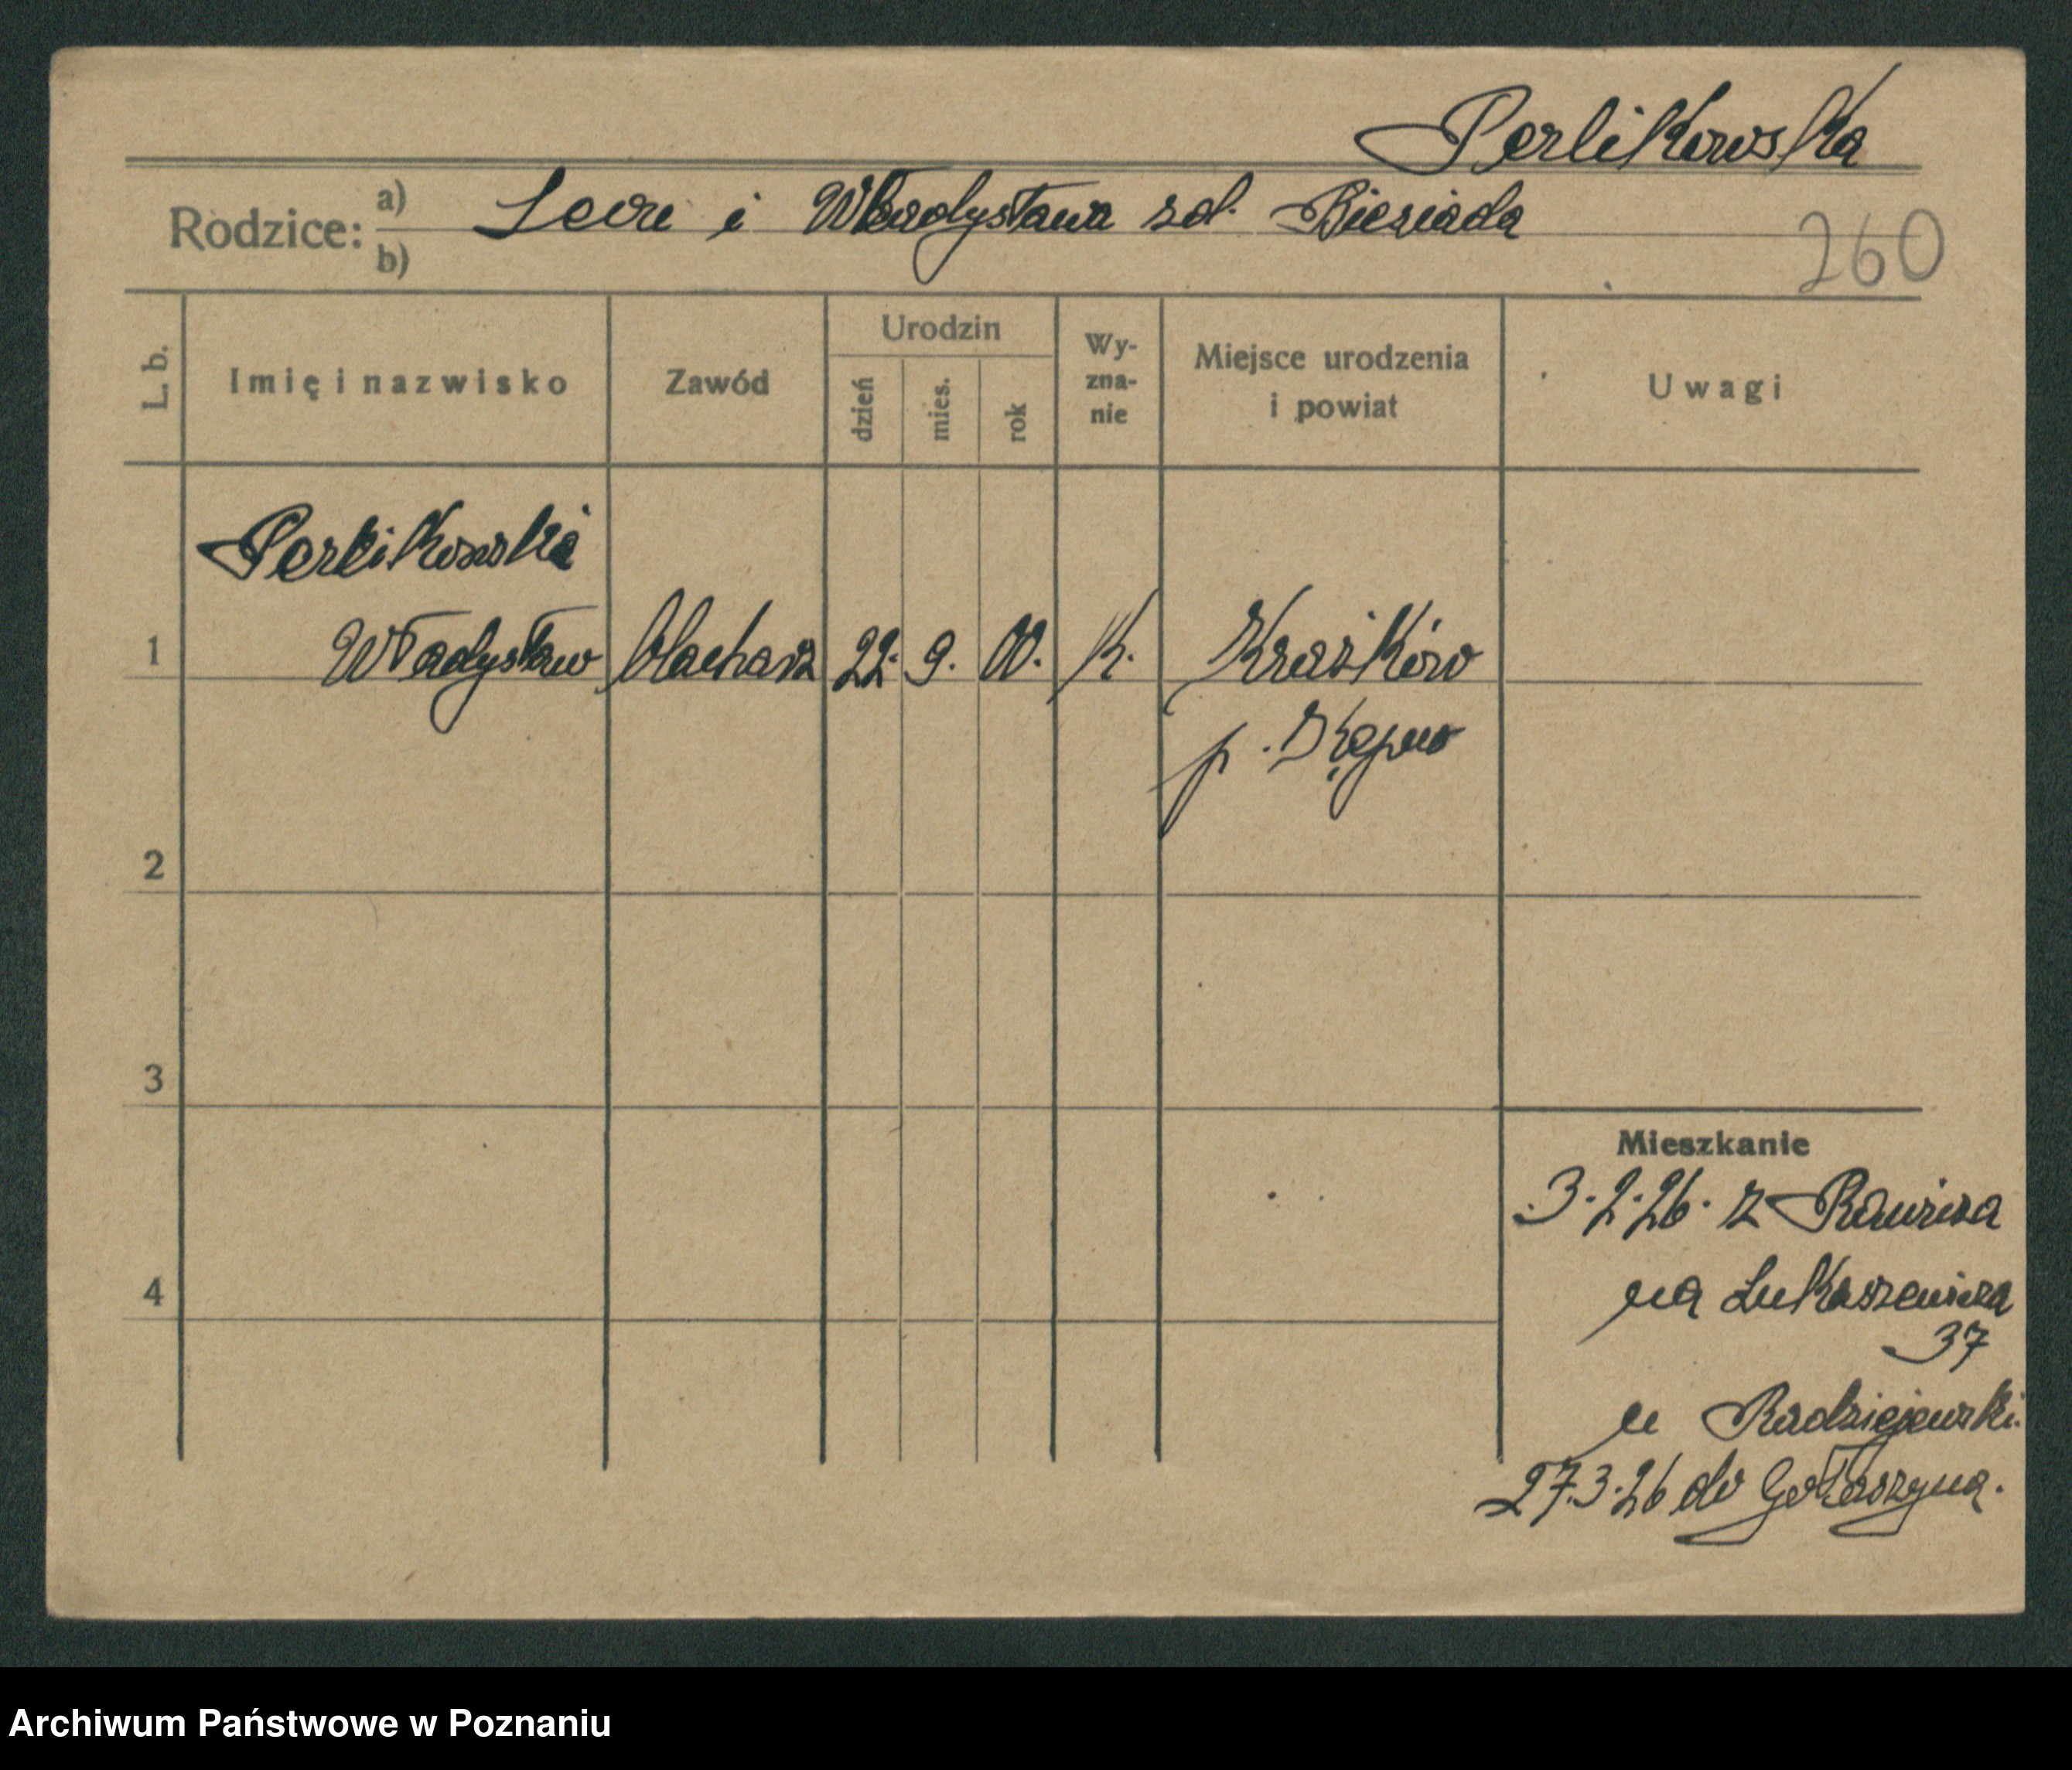 Perlikowska
Rodzice: a) Leon i Władysława zd. Biesiada
b)
260
L. b. Imię i nazwisko Zawód Urodzin dzień mies. rok Wy-zna-nie Miejsce urodzenia i powiat Uwagi
Perlikowski
1 Władysław blacharz 22. 9. 00. K. Kraszków
p. Kępno
2
3
Mieszkanie
3.2.26. z Rawicza
4
na Łukaszewicza
37
u Radziejewski.
27.3.26 do Gołaszyna.
Archiwum Państwowe w Poznaniu